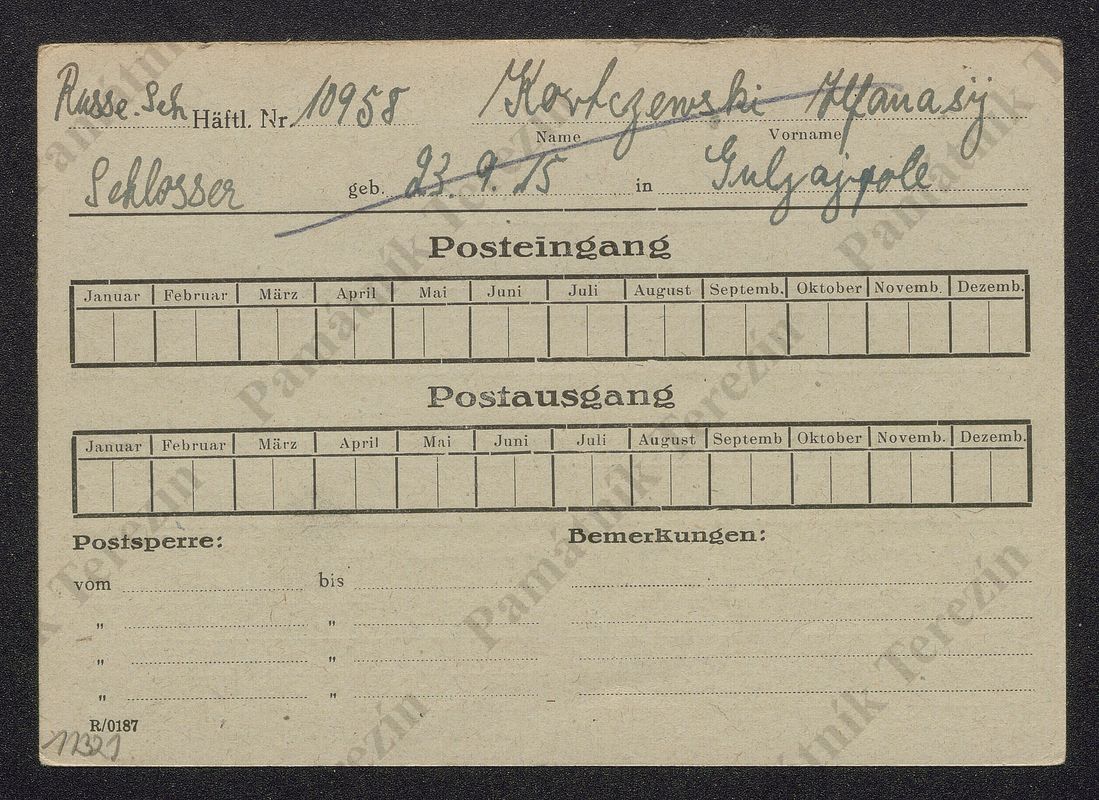 Russe. Sch Häftl. Nr. 10958 Kortczewski Afanasij
Name Vorname
Schlosser geb. 23. 9. 15 in Guljajpole
Posteingang
Januar Februar März April Mai Juni Juli August Septemb. Oktober Novemb. Dezemb.
Postausgang
Januar Februar März April Mai Juni Juli August Septemb Oktober Novemb. Dezemb.
Postsperre: Bemerkungen:
vom bis
" "
" "
" "
R/0187
11321
Památník Terezín